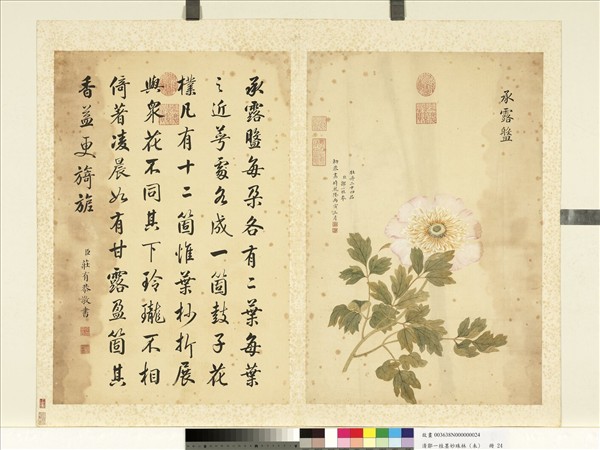 承露盤
承露盤每朵各有二葉每葉
之近萼處各成一箇鼓子花
樸凡有十二箇惟葉杪折展
與衆花不同其下玲瓏不相
倚著凌晨如有甘露盈箇其
香益更旖旎
臣莊有恭敬書
故畫 003638N000000024
清鄒一桂墨妙珠林（未） 冊 24